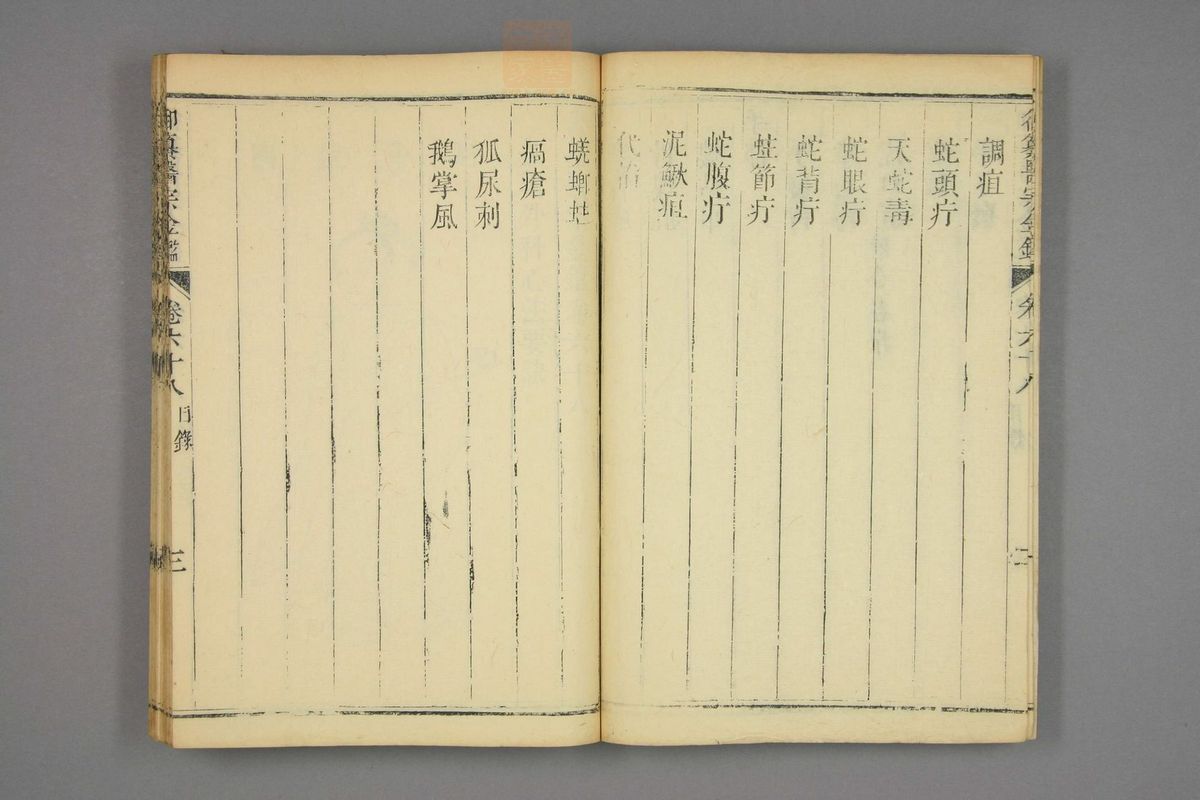 御纂醫宗金鑑 卷六十八
調疽
蛇頭疔
天蛇毒
蛇眼疔
蛇背疔
蛀節疔
蛇腹疔
泥鰍疽
代指
蟯螂蛀
瘑瘡
狐尿刺
鵝掌風
御纂醫宗金鑑 卷六十八 目錄 三